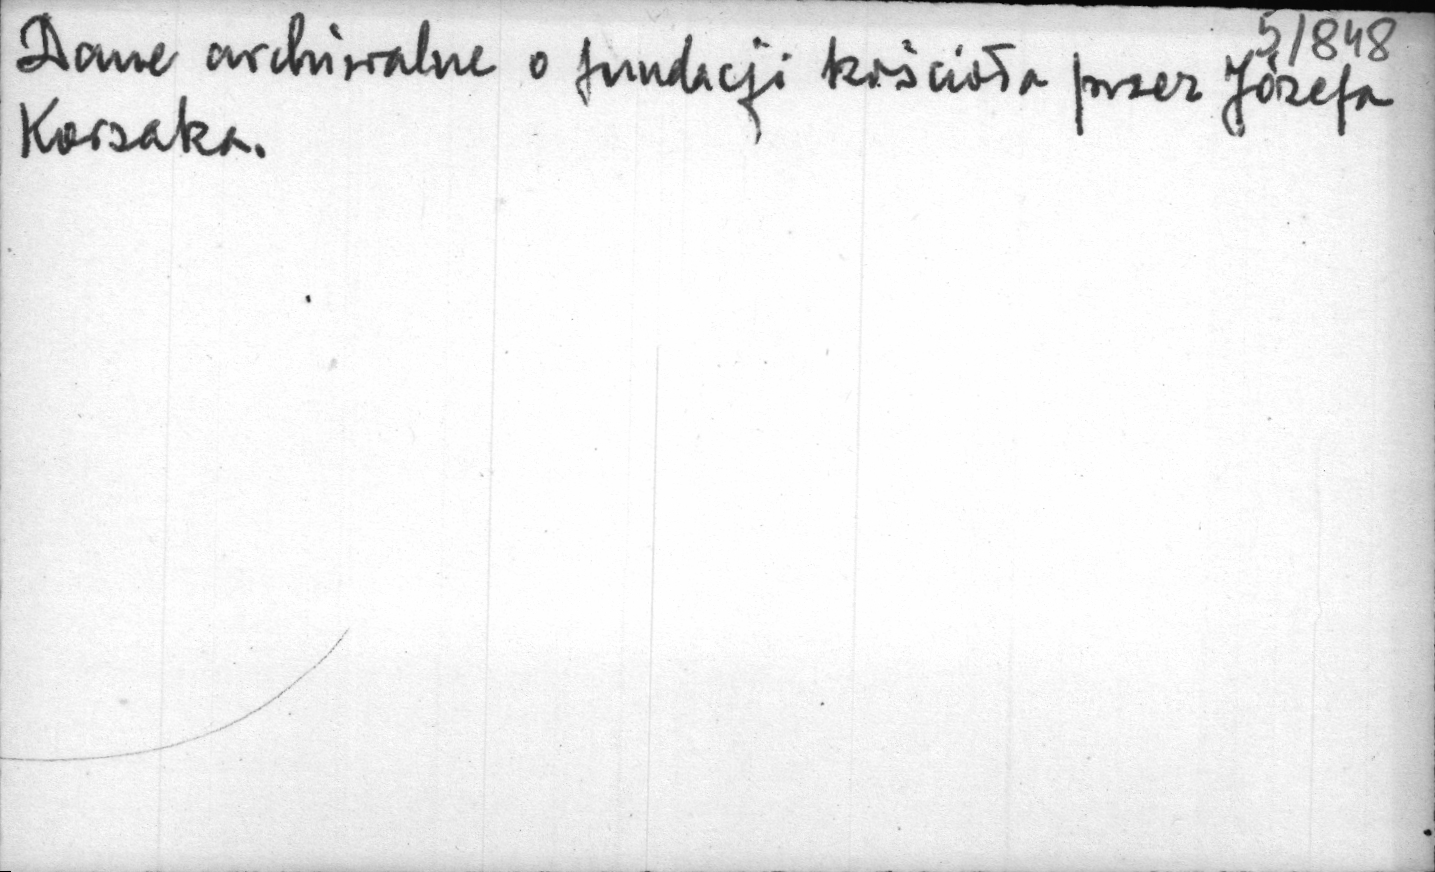 5/848
Dane archiwalne o fundacji kościoła przez Józefa
Korsaka.